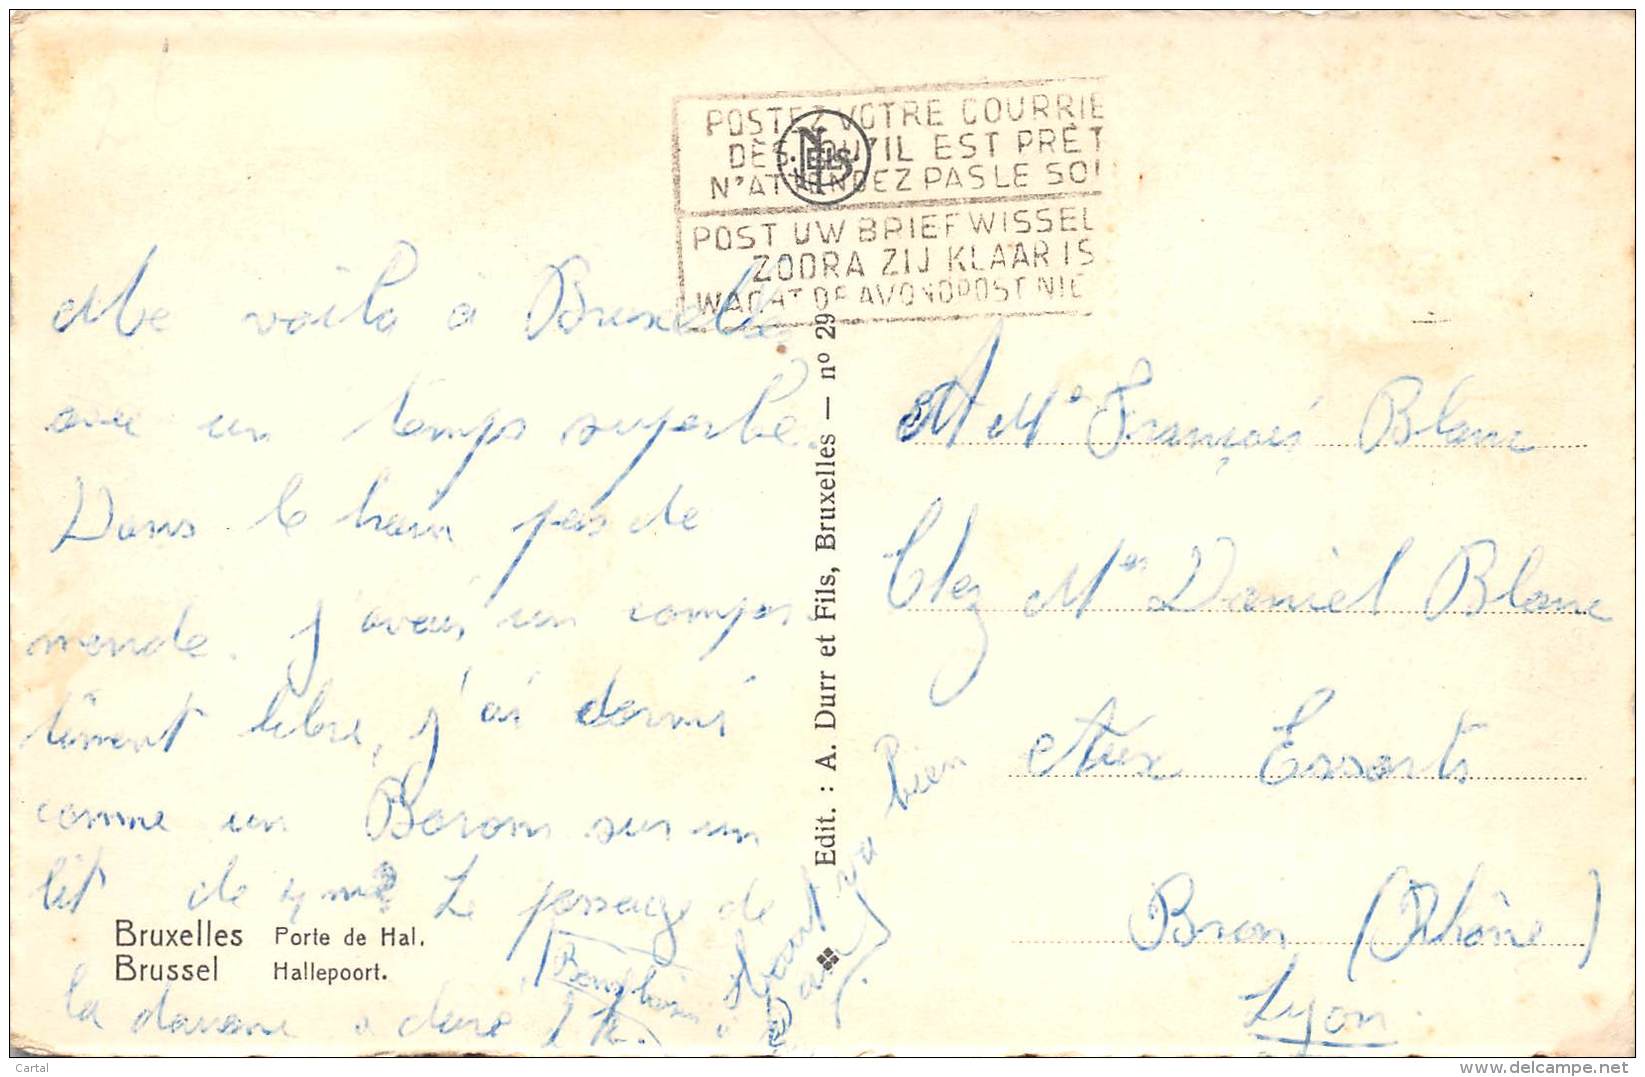 POSTEZ VOTRE COURRIE
DÈS QU'IL EST PRÊT
N'ATTENDEZ PAS LE SOI
POST UW BRIEFWISSEL
ZODRA ZIJ KLAAR IS
WACHT DE AVONDPOST NIE
NELS
Me voilà à Bruxelles
avec un temps superbe.
Dans le train pas de
monde. J'avais un compar
timent libre, j'ai dormi
comme un Baron sur un
lit de 4 m2 Le passage de
la douane a duré 1 h.
Bons baisers à
tout va bien
Bruxelles Porte de Hal.
Brussel Hallepoort.
Edit. : A. Durr et Fils, Bruxelles — nº 29
A Me François Blanc
Chez Mes Daniel Blanc
Aux Essarts
Bron (Rhône)
Lyon
Cartal
www.delcampe.net